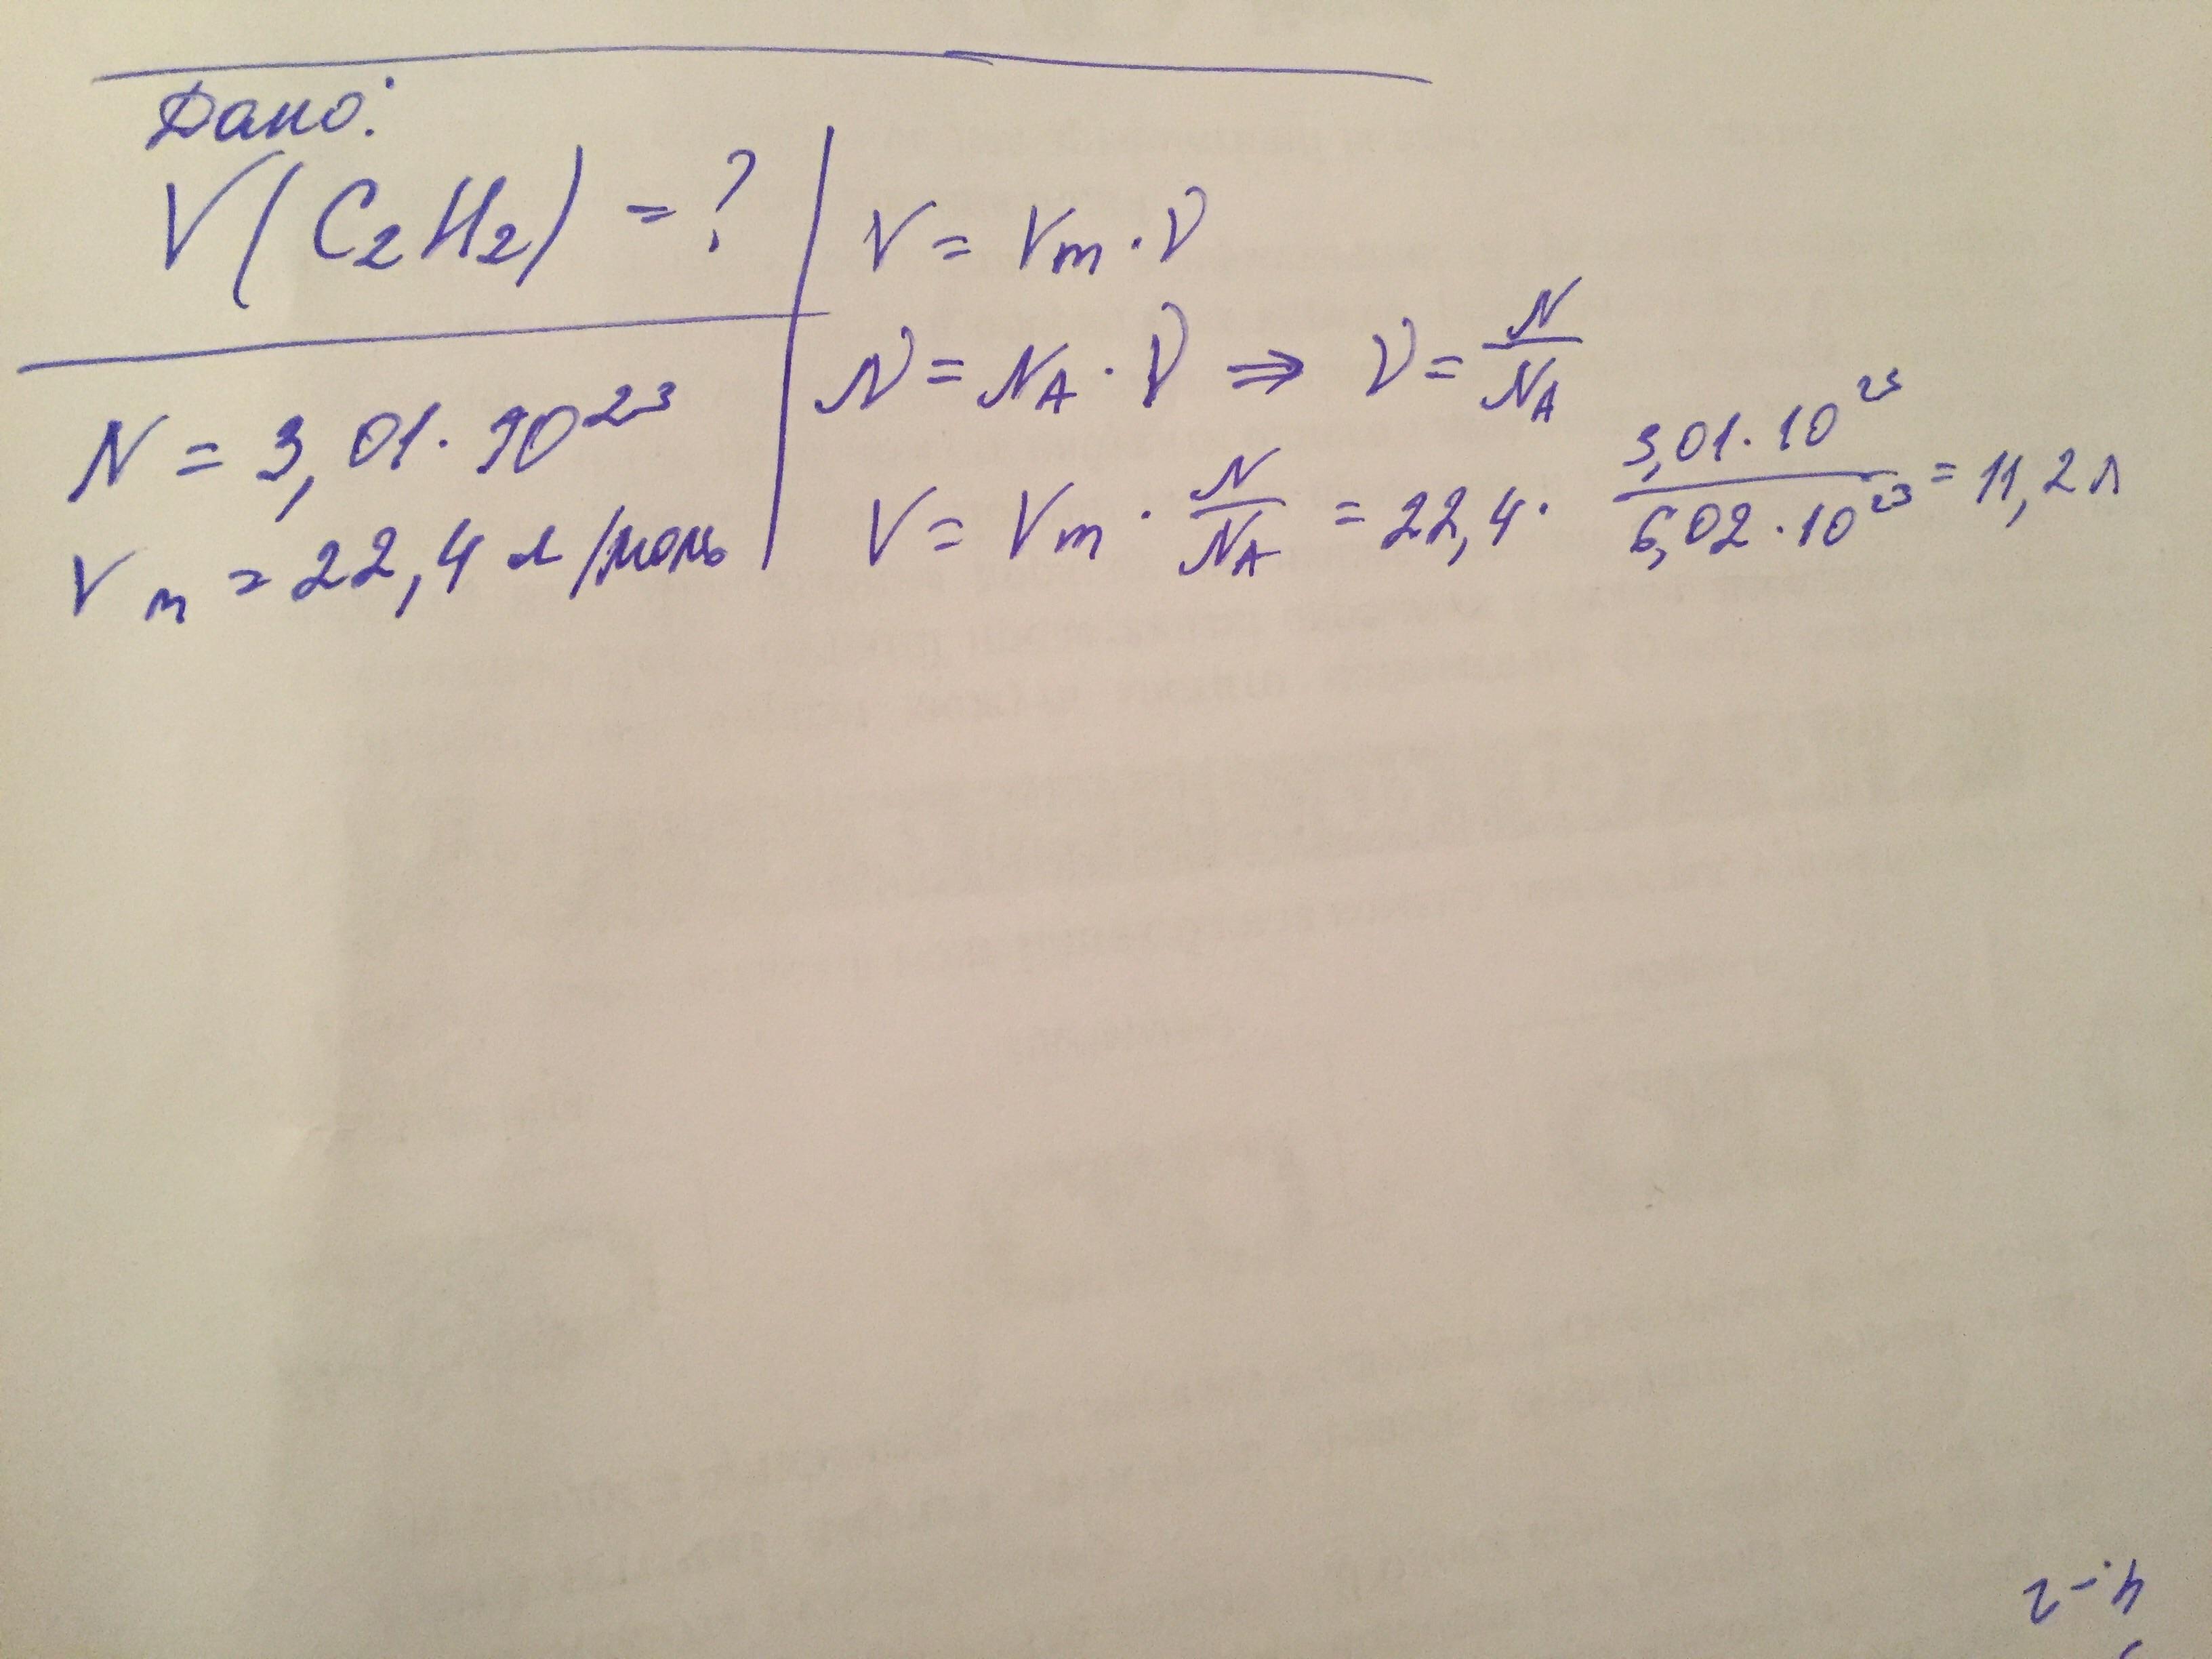 Дано:
V(C₂H₂) = ?
N = 3,01 · 10²³
Vm = 22,4 л/моль
V = Vm · ν
N = NA · ν ⇒ ν = N/NA
V = Vm · N/NA = 22,4 · 3,01·10²³/6,02·10²³ = 11,2 л